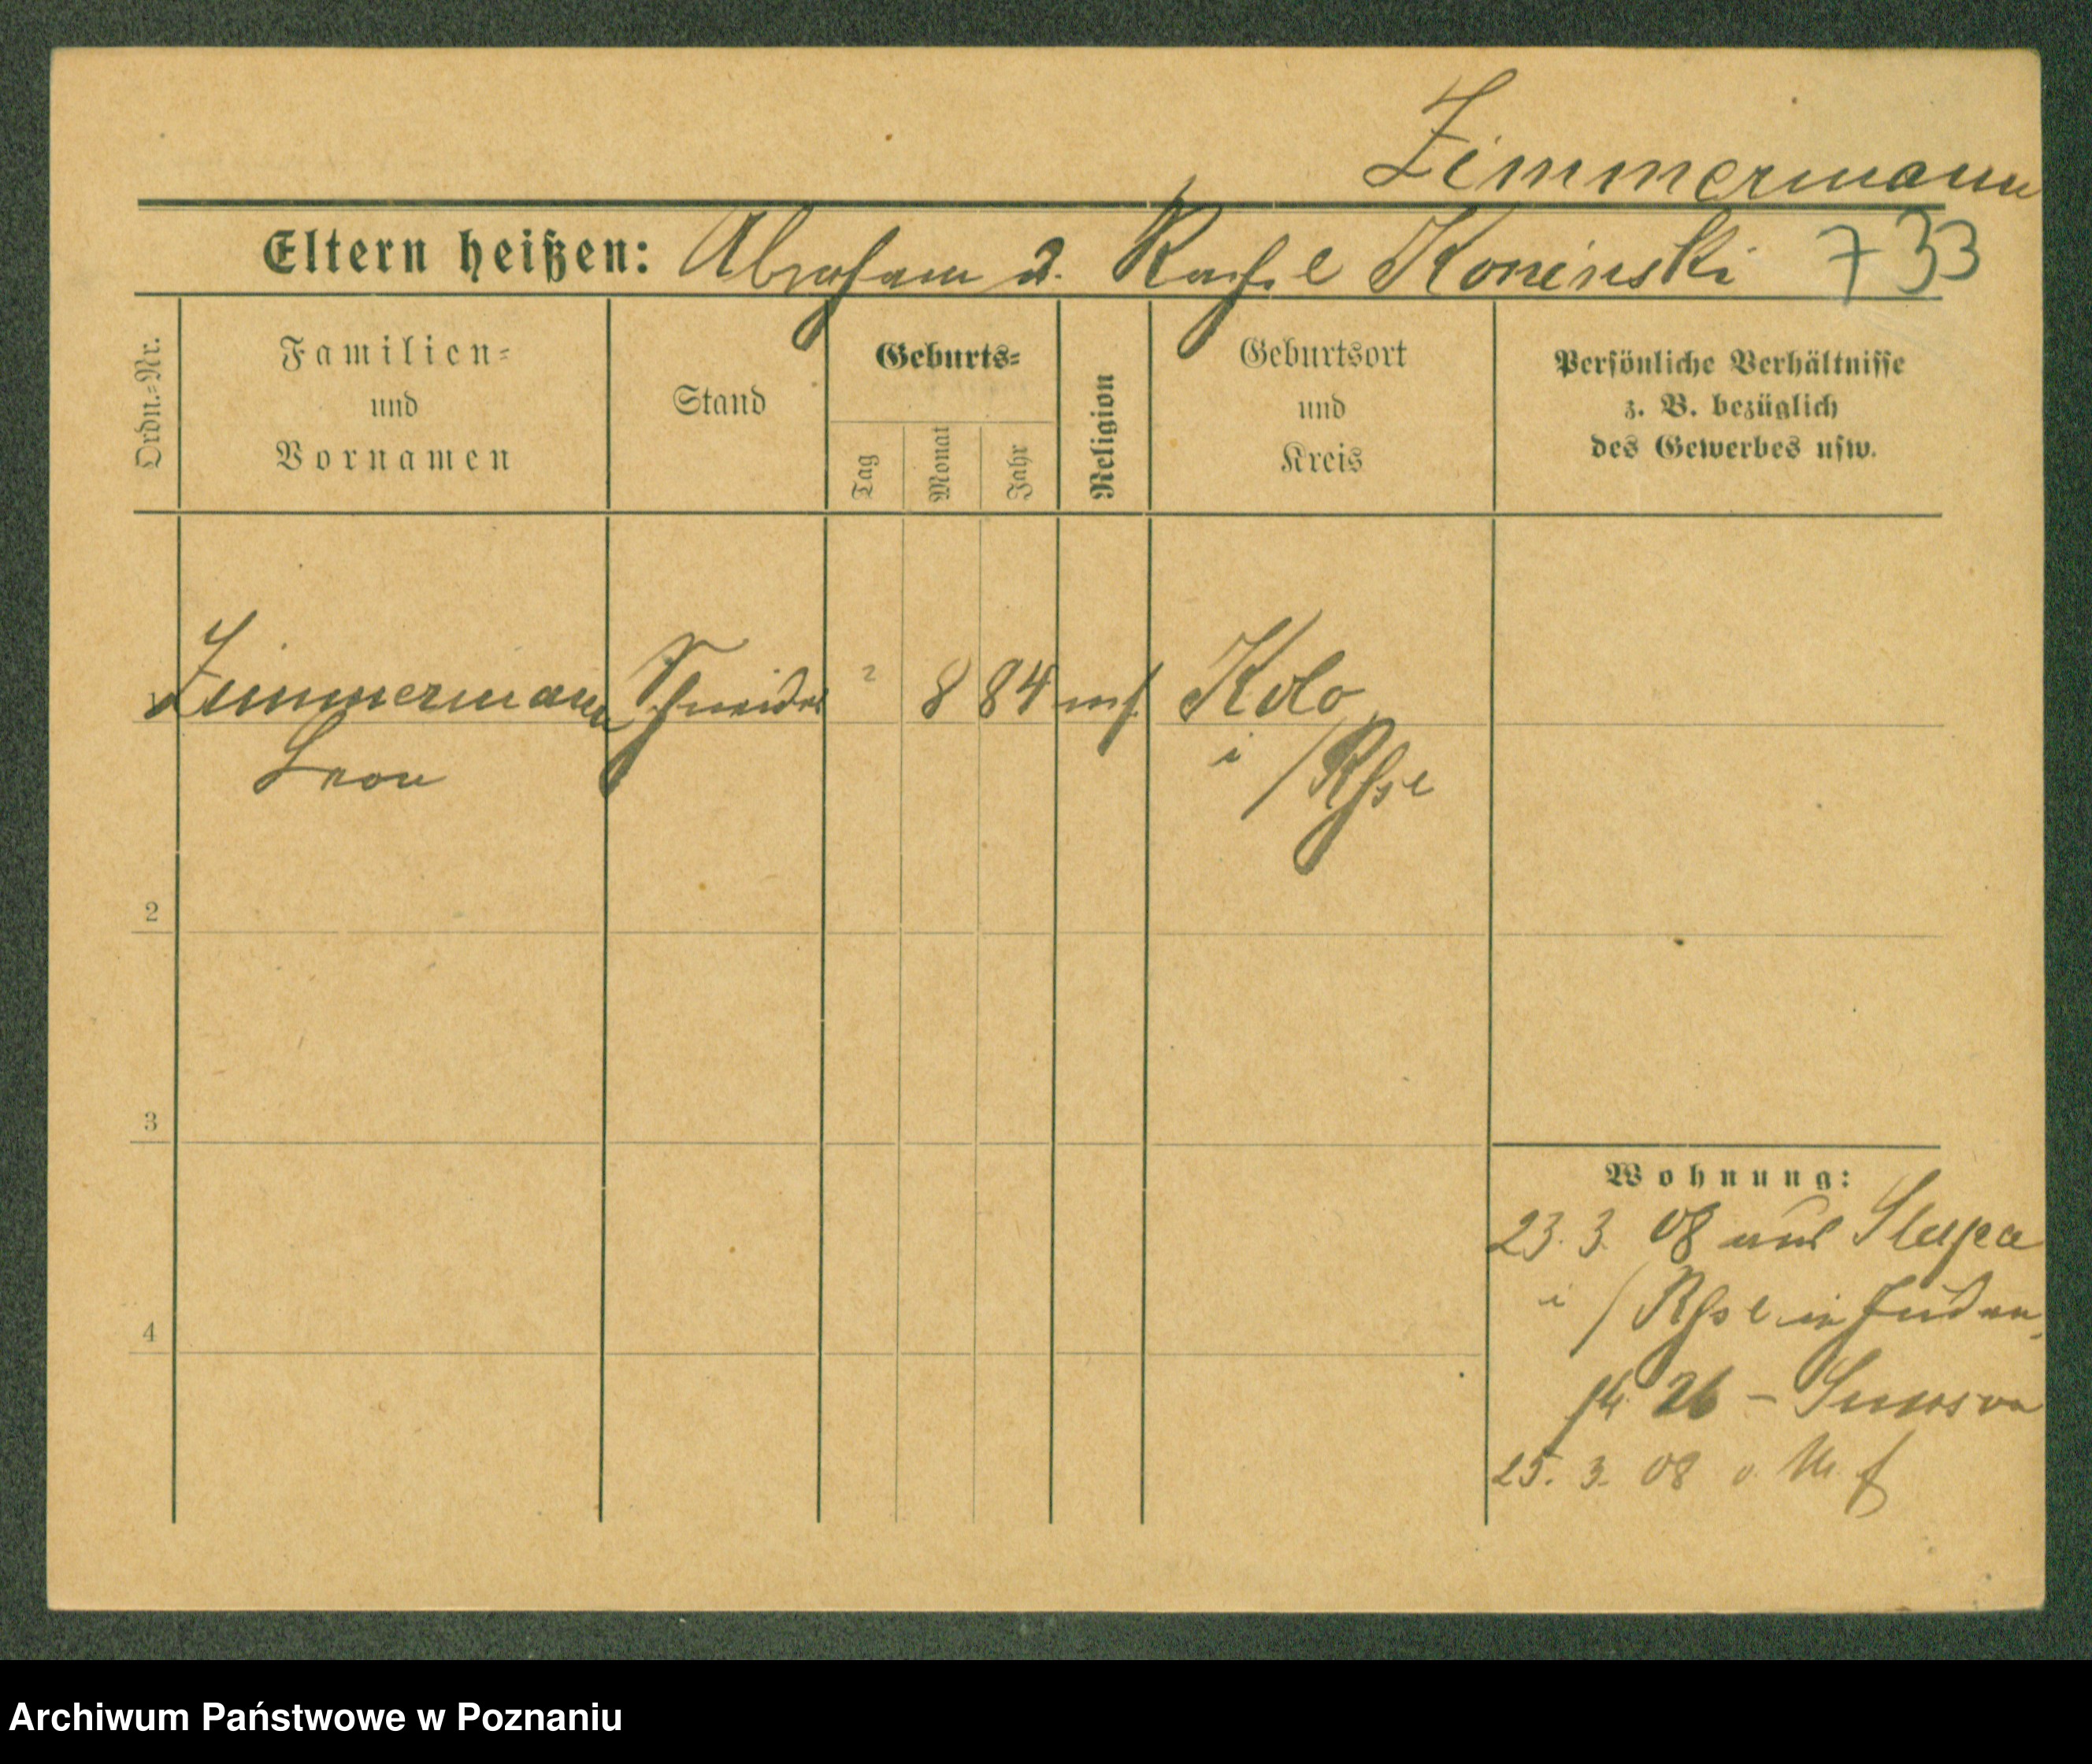 Zimmermann
Eltern heißen: Abraham u. Rachel Koninski 733
Ordn.-Nr.
Familien-
und
Vornamen
Stand
Geburts-
Tag
Monat
Jahr
Religion
Geburtsort
und
Kreis
Persönliche Verhältnisse
z. B. bezüglich
des Gewerbes usw.
1 Zimmermann Schneider 2 8 84 mos. Kolo
Leon i/Rßl
2
3
4
Wohnung:
23. 3. 08 aus Slupca
i/Rßl in Juden
str 26 –
25. 3. 08 v.
Archiwum Państwowe w Poznaniu